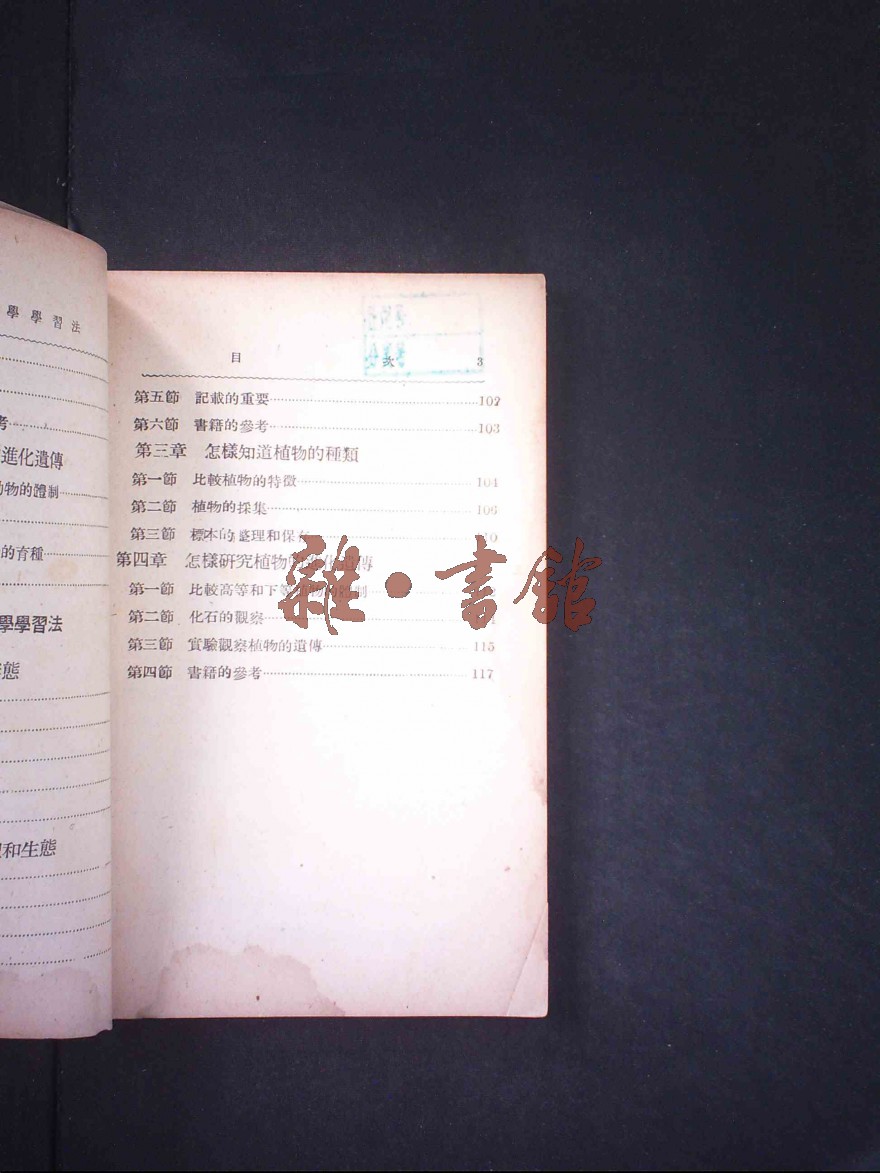 學學習法
考
進化遺傳
物的體制
的育種
學學習法
態
和生態
目 次 3
第五節 記載的重要 102
第六節 書籍的參考 103
第三章 怎樣知道植物的種類
第一節 比較植物的特徵 104
第二節 植物的採集 106
第三節 標本的整理和保
第四章 怎樣研究植物 遺傳
第一節 比較高等和下等
第二節 化石的觀察
第三節 實驗觀察植物的遺傳 115
第四節 書籍的參考 117
雜·書館